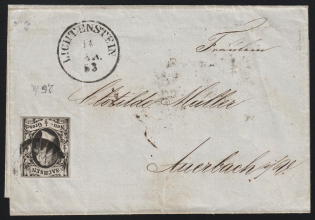 LICHTENSTEIN
14
53
Fräulein
Clotilde Müller
Auerbach i/V.
SACHSEN